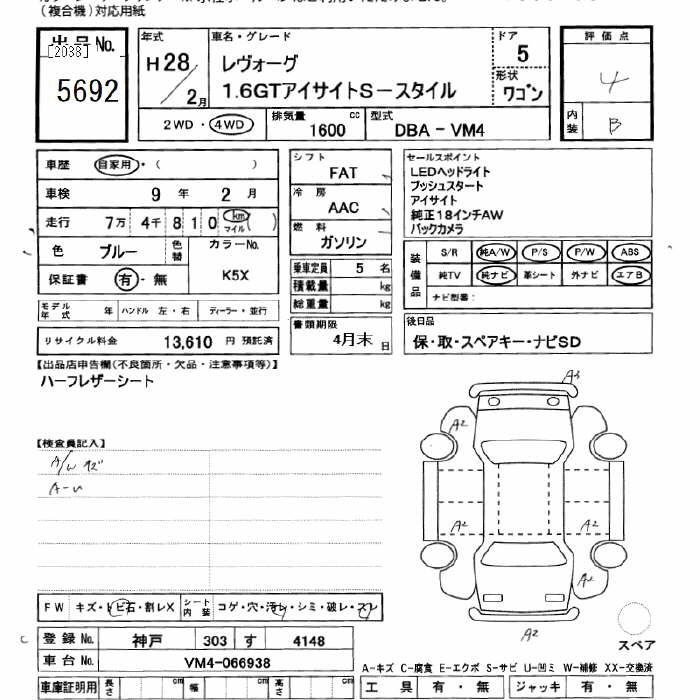 (複合機)対応用紙
出品No.
[2038]
5692
年式
H28
2月
車名・グレード
レヴォーグ
1.6GTアイサイトS-スタイル
ドア
5
形状
ワゴン
2WD・4WD
排気量
1600 cc
型式
DBA-VM4
評価点
4
内装
B
車歴 自家用・( )
車検 9年 2月
走行 7万4千810 km マイル ( )
色 ブルー 色替
カラーNo.
K5X
保証書 有・無
モデル年式 年 ハンドル 左・右 ディーラー・並行
リサイクル料金 13,610 円 預託済
シフト
FAT
冷房
AAC
燃料
ガソリン
乗車定員 5 名
積載量 kg
総重量 kg
書類期限
4月末 日
セールスポイント
LEDヘッドライト
プッシュスタート
アイサイト
純正18インチAW
バックカメラ
装備品
S/R 純A/W P/S P/W ABS
純TV 純ナビ 革シート 外ナビ エアB
ナビ型番:
後日品
保・取・スペアキー・ナビSD
【出品店申告欄(不良箇所・欠品・注意事項等)】
ハーフレザーシート
【検査員記入】
A/W キズ
A-U
A3
A2
A2
A2
A2
A2
A2
スペア
FW キズ・トビ石・割レX シート内装 コゲ・穴・汚レ・シミ・破レ・スレ
登録No. 神戸 303 す 4148
車台No. VM4-066938
車庫証明用 長さ cm 幅 cm 高さ cm
A-キズ C-腐食 E-エクボ S-サビ U-凹ミ W-補修 XX-交換済
工具 有・無 ジャッキ 有・無